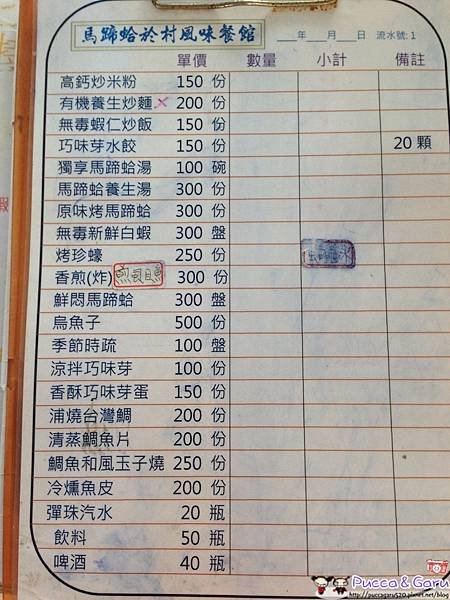 馬蹄蛤於村風味餐館 ___年___月___日 流水號:1
單價 數量 小計 備註
高鈣炒米粉 150 份
有機養生炒麵 200 份
無毒蝦仁炒飯 150 份
巧味芽水餃 150 份 20 顆
獨享馬蹄蛤湯 100 碗
馬蹄蛤養生湯 300 份
原味烤馬蹄蛤 300 份
無毒新鮮白蝦 300 盤
烤珍蠔 250 份
香煎(炸) 300 份
鮮悶馬蹄蛤 300 盤
烏魚子 500 份
季節時疏 100 盤
涼拌巧味芽 100 份
香酥巧味芽蛋 150 份
浦燒台灣鯛 200 份
清蒸鯛魚片 200 份
鯛魚和風玉子燒 250 份
冷燻魚皮 200 份
彈珠汽水 20 瓶
飲料 50 瓶
啤酒 40 瓶
Pucca & Garu
http://puccagaru520.pixnet.net/blog